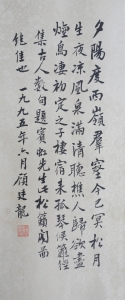 夕陽度西嶺羣壑今已冥松月
生夜凉風泉滿清聽樵人歸欲盡
煙鳥棲初定之子宿來孤琴候蘿徑
集古人數句題賓虹先生松
佳也 一九九五年六月 顧廷龍